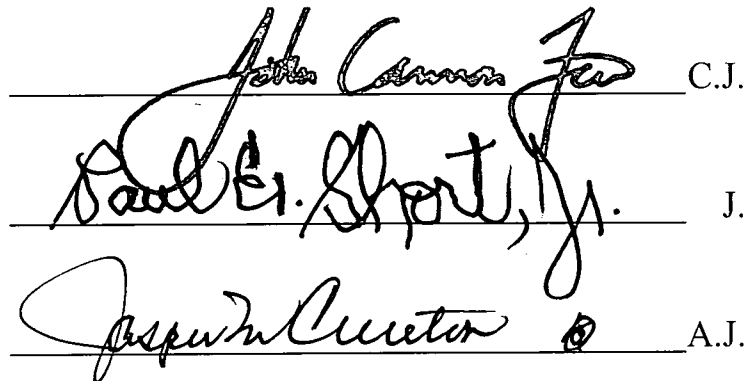 John Cannon Few C.J.
Paul E. Short, Jr. J.
Jasper M Cureton A.J.